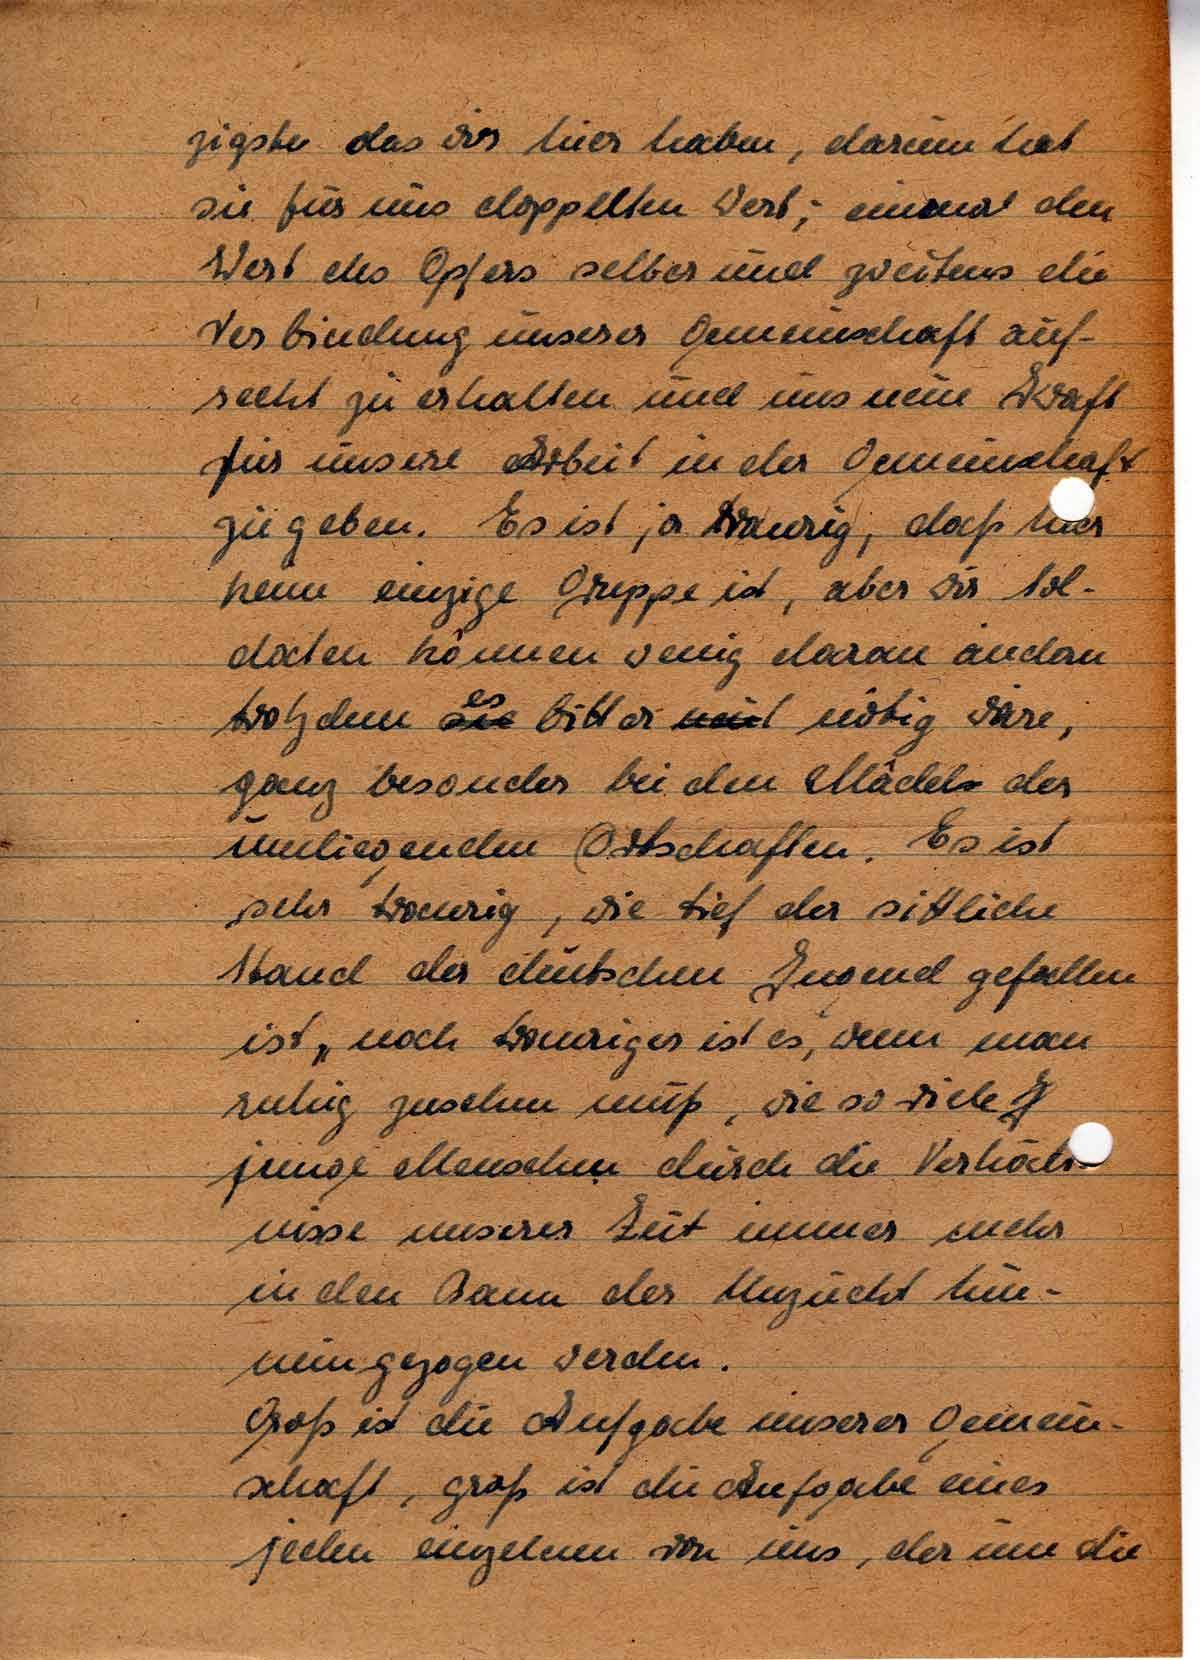 zigste das wir hier haben, darum hat
sie für uns doppelten Wert; einmal den
Wert des Opfers selber und zweitens die
Verbindung unserer Gemeinschaft auf-
recht zu erhalten und uns neue Kraft
für unsere Arbeit in der Gemeinschaft
zu geben. Es ist ja traurig, daß hier
keine einzige Gruppe ist, aber wir Sol-
daten können wenig daran ändern
trotzdem es bitter nötig wäre,
ganz besonder bei den Mädels der
umliegenden Ortschaften. Es ist
sehr traurig, wie tief der sittliche
Stand der deutschen Jugend gefallen
ist, noch trauriger ist es, wenn man
ruhig zusehen muß, wie so viele
junge Menschen durch die Verhält-
nisse unserer Zeit immer mehr
in den Bann der Unzucht hin-
eingezogen werden.
Groß ist die Aufgabe unserer Gemein-
schaft, groß ist die Aufgabe eines
jeden einzelnen von uns, der um die